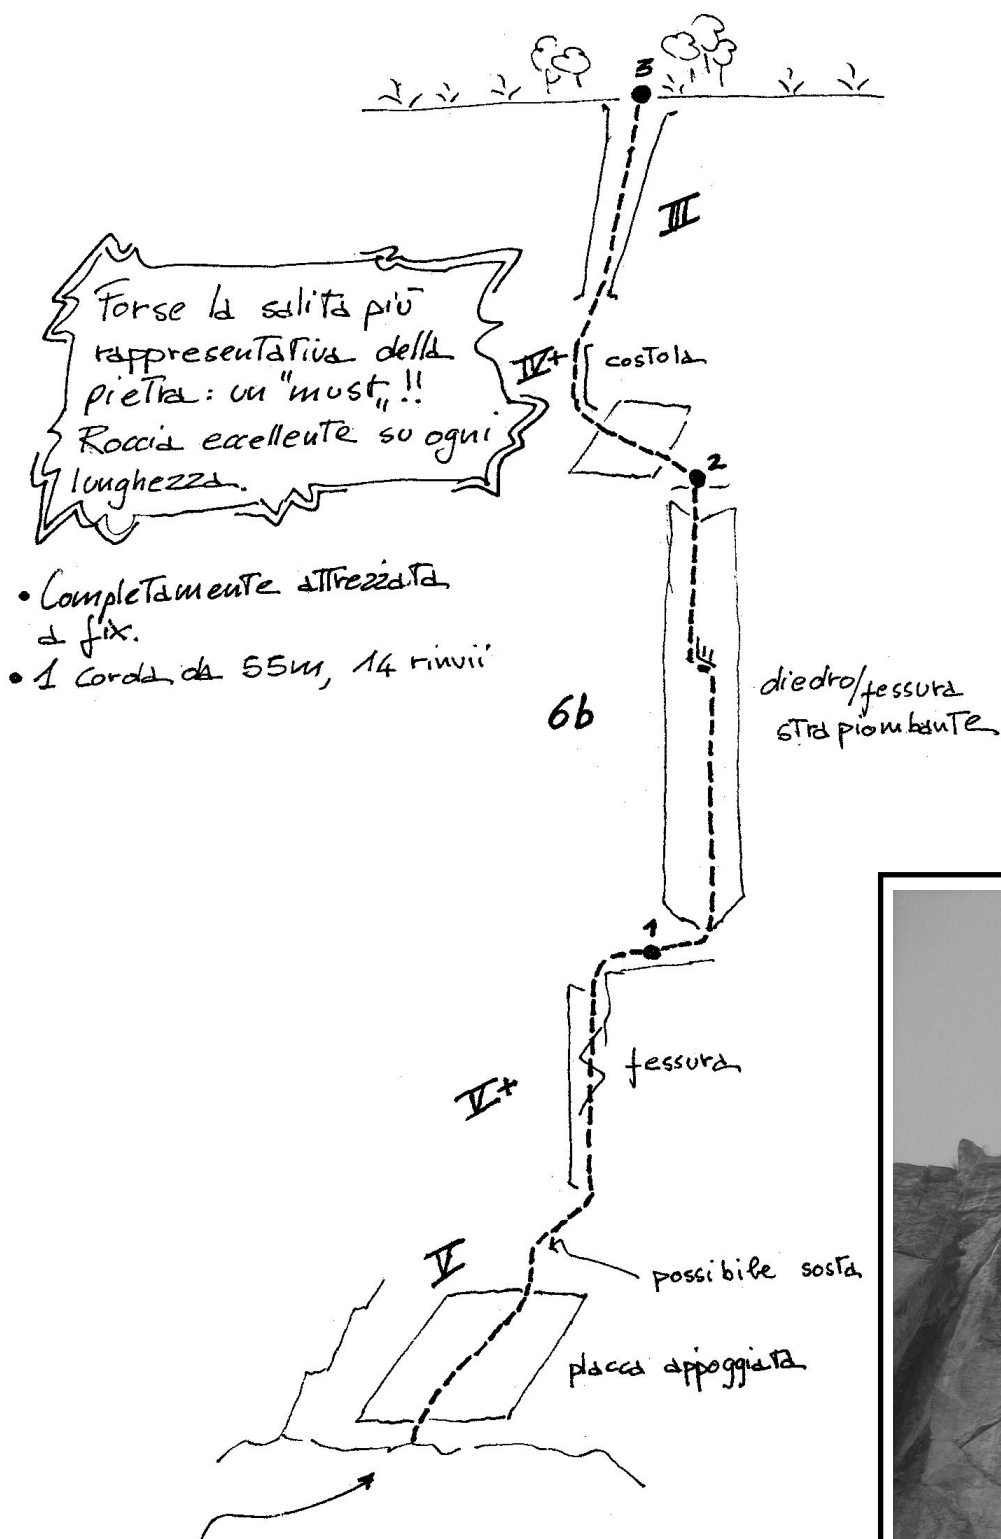 3
III
Forse la salita più
rappresentativa della
pietra: un "must„!!
Roccia eccellente su ogni
lunghezza.
IV+
costola
2
• Completamente attrezzata
a fix.
• 1 corda da 55m, 14 rinvii
6b
diedro/fessura
strapiombante
1
fessura
V+
V
possibile sosta
placca appoggiata